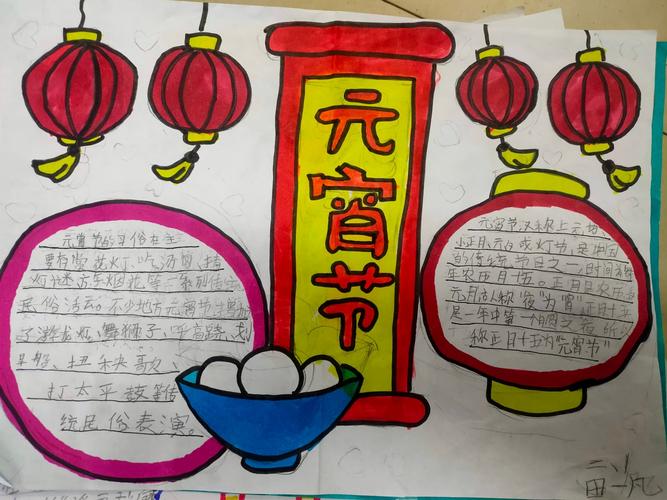 元宵节
元宵节的习俗在主
要有赏花灯、吃汤圆、猜
灯谜、放烟花等一系列传统
民俗活动。不少地方元宵节增加
了游龙灯、舞狮子、踩高跷、
扭秧歌
打太平鼓等传
统民俗表演。
元宵节又称上元节、
小正月、元夕或灯节,是中国
的传统节日之一,时间
年农历正月十五。正月是农历
元月,古人称"夜"为"宵"正月十五
是一年中第一个月圆之夜所以
称正月十五为"元宵节"